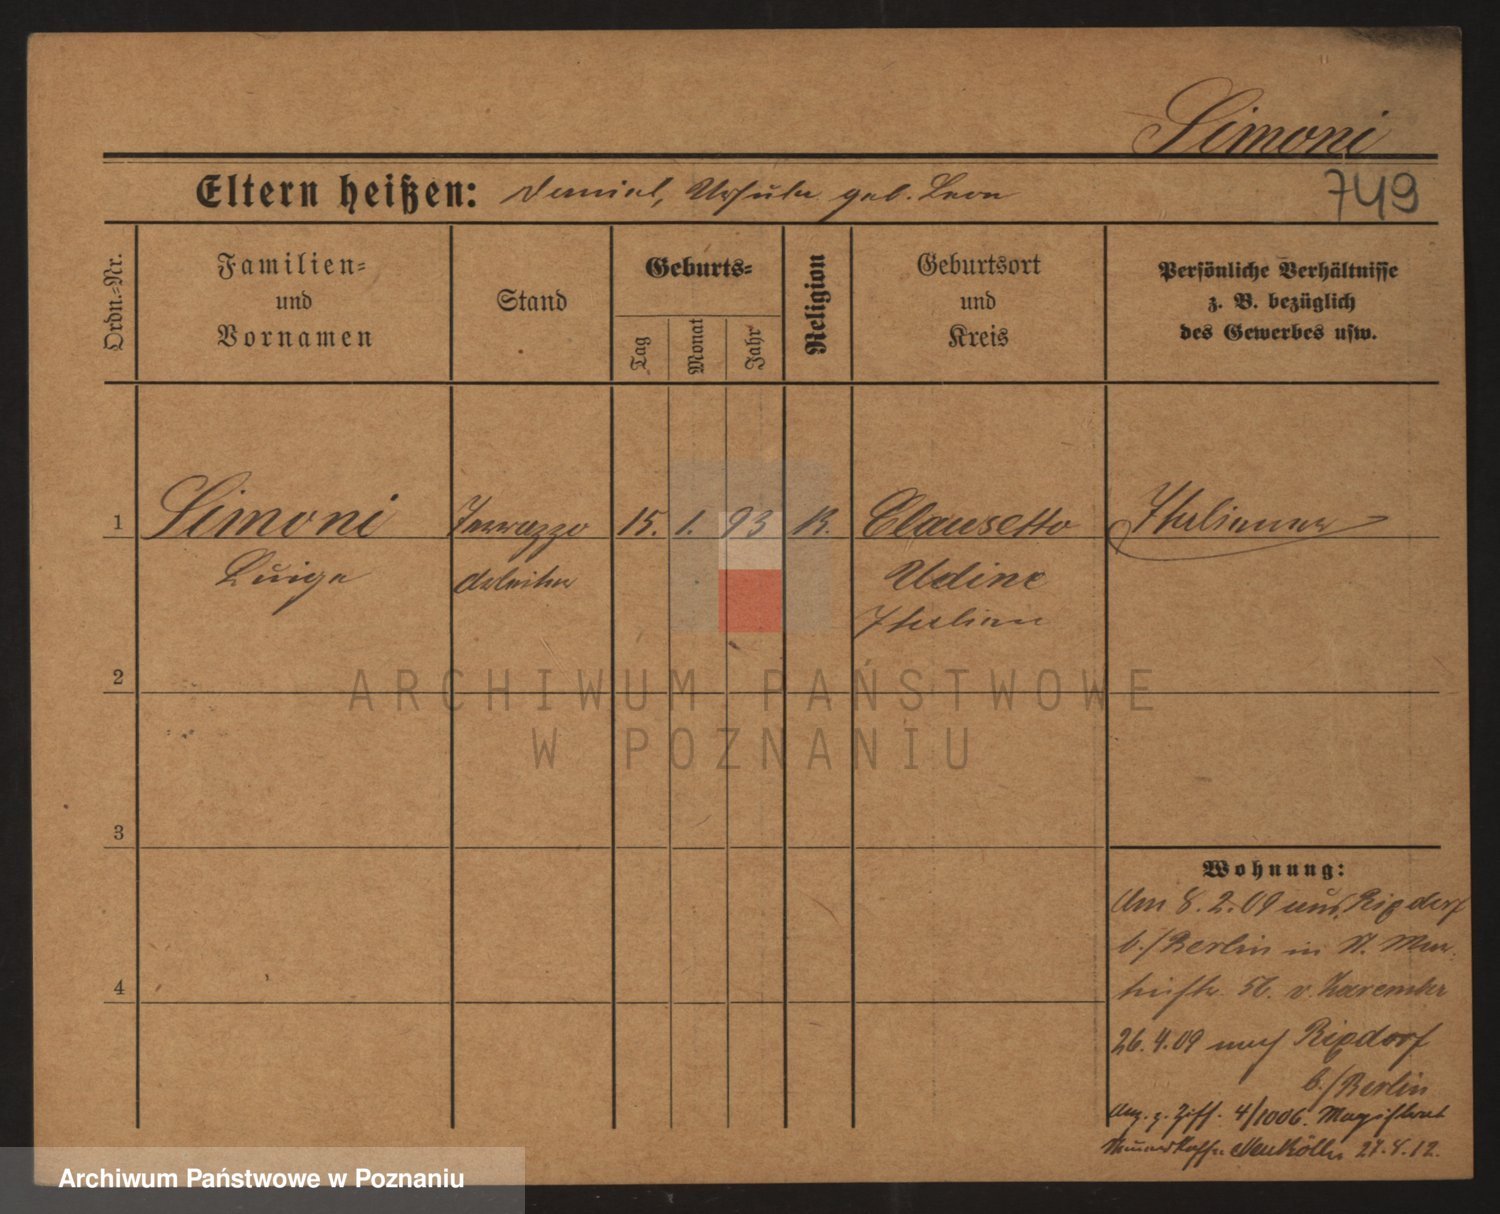 Simoni
Eltern heißen: Daniel, Ursula geb. Leon
749
Ordn.-Nr.
Familien-
und
Vornamen
Stand
Geburts-
Tag
Monat
Jahr
Religion
Geburtsort
und
Kreis
Persönliche Verhältnisse
z. B. bezüglich
des Gewerbes usw.
1
Simoni
Terrazzo
15. 1. 93
K.
Clausetto
Italiener
Luige
Arbeiter
Udine
Italien
2
ARCHIWUM PAŃSTWOWE
W POZNANIU
3
Wohnung:
Am 8. 2. 09 Rixdorf
b./Berlin in St. Mar-
tinstr. 56. v.
26. 4. 09 nach Rixdorf
b./Berlin
4
Anz. z. Ziff. 4/1006. Magistrat
Neukölln 27. 8. 12.
Archiwum Państwowe w Poznaniu